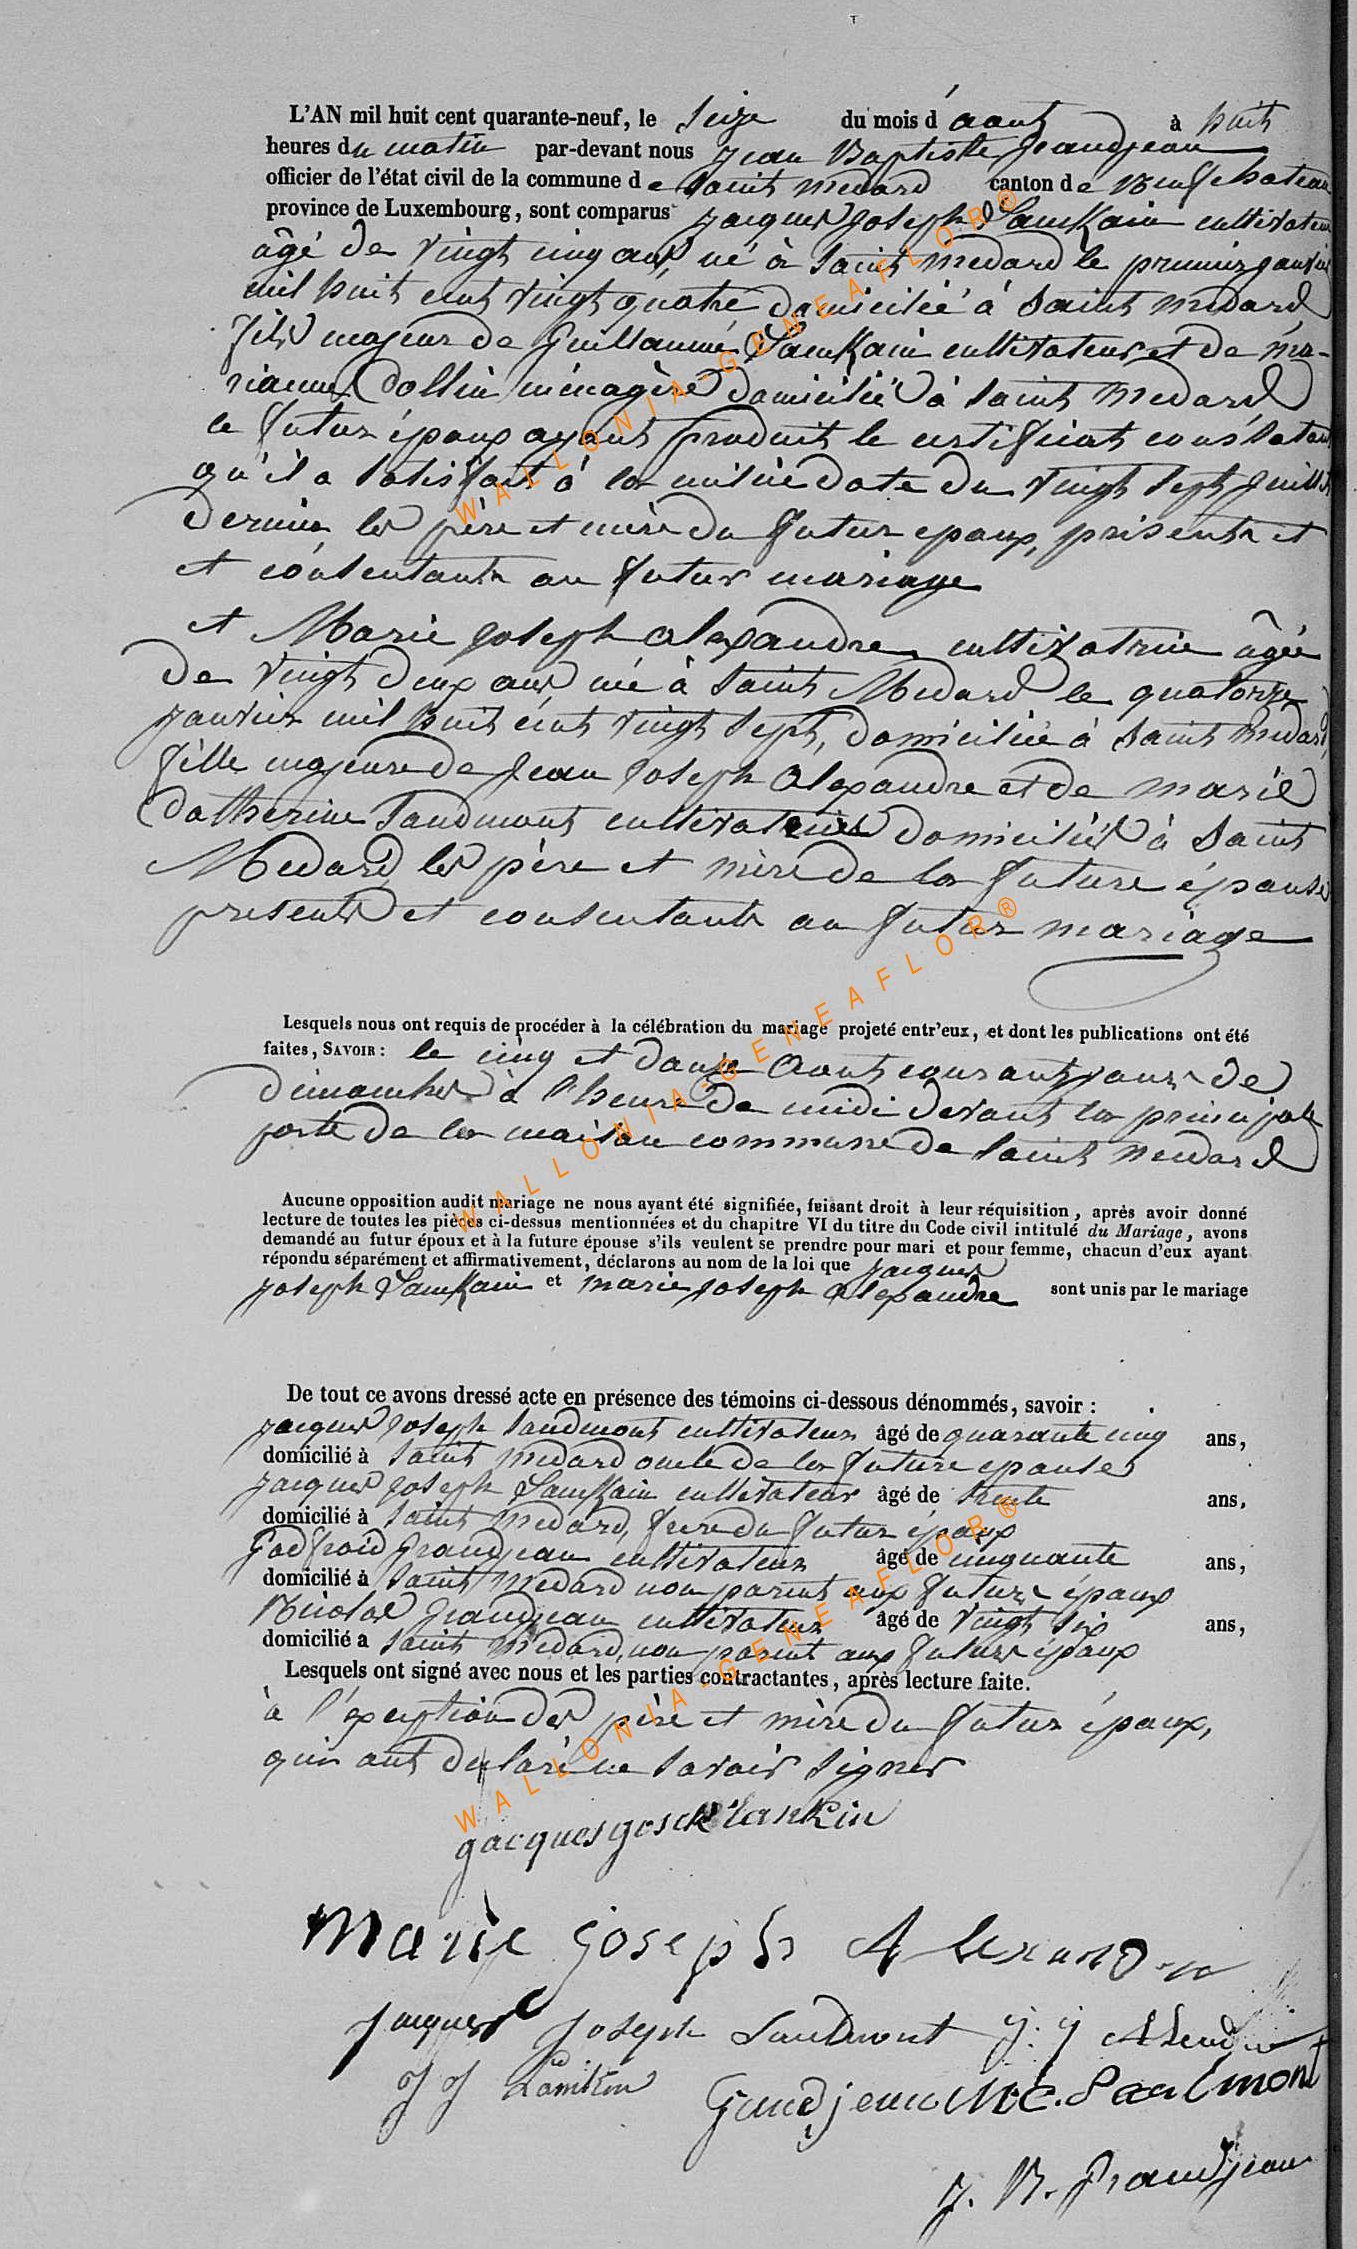 L'AN mil huit cent quarante-neuf, le seize du mois d'août à huit
heures du matin par-devant nous Jean Baptiste Grandjean
officier de l'état civil de la commune de Saint Medard canton de Neufchateau
province de Luxembourg, sont comparus Jacques Joseph Lamkain cultivateur
âgé de vingt cinq ans, né à Saint Medard le premier janvier
mil huit cent vingt quatre domicilié à Saint Medard
fils majeur de Guillaume Lamkain cultivateur et de ma-
rianne Collin ménagère domicilié à Saint Medard
le futur époux ayant produit le certificat constatant
qu'il a satisfait à la milice date du vingt sept juillet
dernier les père et mère du futur epoux, présents et
et consentants au futur mariage
et Marie Joseph Alexandre cultivatrice âgée
de vingt deux ans né à Saint Medard le quatorze
janvier mil huit cent vingt sept, domiciliée à Saint Medard,
fille majeure de Jean Joseph Alexandre et de Marie
Catherine Saudmont cultivateurs domiciliés à Saint
Medard, les père et mère de la future épouse
presents et consentants au futur mariage
Lesquels nous ont requis de procéder à la célébration du mariage projeté entr'eux, et dont les publications ont été
faites, SAVOIR : le cinq et douze Aout courant jours de
dimanches à l'heure de midi devant la principale
porte de la maison commune de Saint Medard
Aucune opposition audit mariage ne nous ayant été signifiée, faisant droit à leur réquisition, après avoir donné
lecture de toutes les pièces ci-dessus mentionnées et du chapitre VI du titre du Code civil intitulé du Mariage, avons
demandé au futur époux et à la future épouse s'ils veulent se prendre pour mari et pour femme, chacun d'eux ayant
répondu séparément et affirmativement, déclarons au nom de la loi que Jacques
Joseph Lamkain et Marie Joseph Alexandre sont unis par le mariage
De tout ce avons dressé acte en présence des témoins ci-dessous dénommés, savoir :
Jacques Joseph Saudmont cultivateur âgé de quarante cinq ans,
domicilié à Saint Medard oncle de la future epouse
Jacques Joseph Lamkain cultivateur âgé de trente ans,
domicilié à Saint Medard, frere du futur époux
Godfroid Grandjean cultivateur âgé de cinquante ans,
domicilié à Saint Medard non parent aux futurs époux
Nicolas Grandjean cultivateur âgé de vingt six ans,
domicilié a Saint Medard, non parent aux futurs époux
Lesquels ont signé avec nous et les parties contractantes, après lecture faite.
à l'exception des père et mère du futur époux,
qui ont declaré ne savoir signer
Marie Joseph
Jacques Joseph Saudmont J. J
J J Lamkin Grandjean M. C. Saudmont
Grandjean
WALLONIA-GENEAFLOR®
WALLONIA-GENEAFLOR®
WALLONIA-GENEAFLOR®